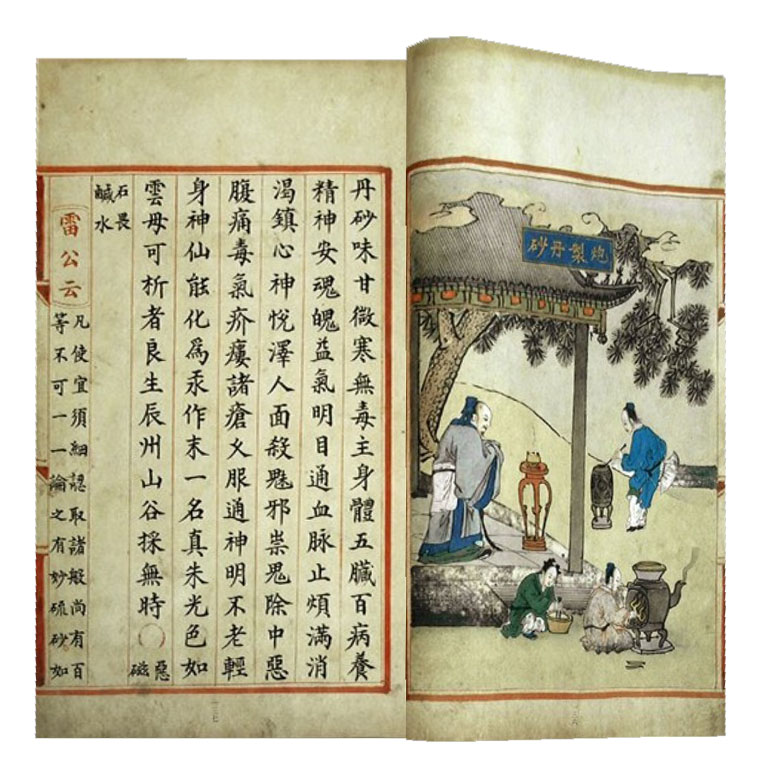 炮製丹砂
丹砂味甘微寒無毒主身體五臟百病養
精神安魂魄益氣明目通血脈止煩滿消
渴鎮心神悅澤人面殺魅邪祟鬼除中惡
腹痛毒氣疥瘻諸瘡久服通神明不老輕
身神仙能化爲汞作末一名真朱光色如
雲母可析者良生辰州山谷採無時〇惡磁
石畏鹹水
雷公云
凡使宜須細認取諸般尚有百
等不可一一論之有妙硫砂如